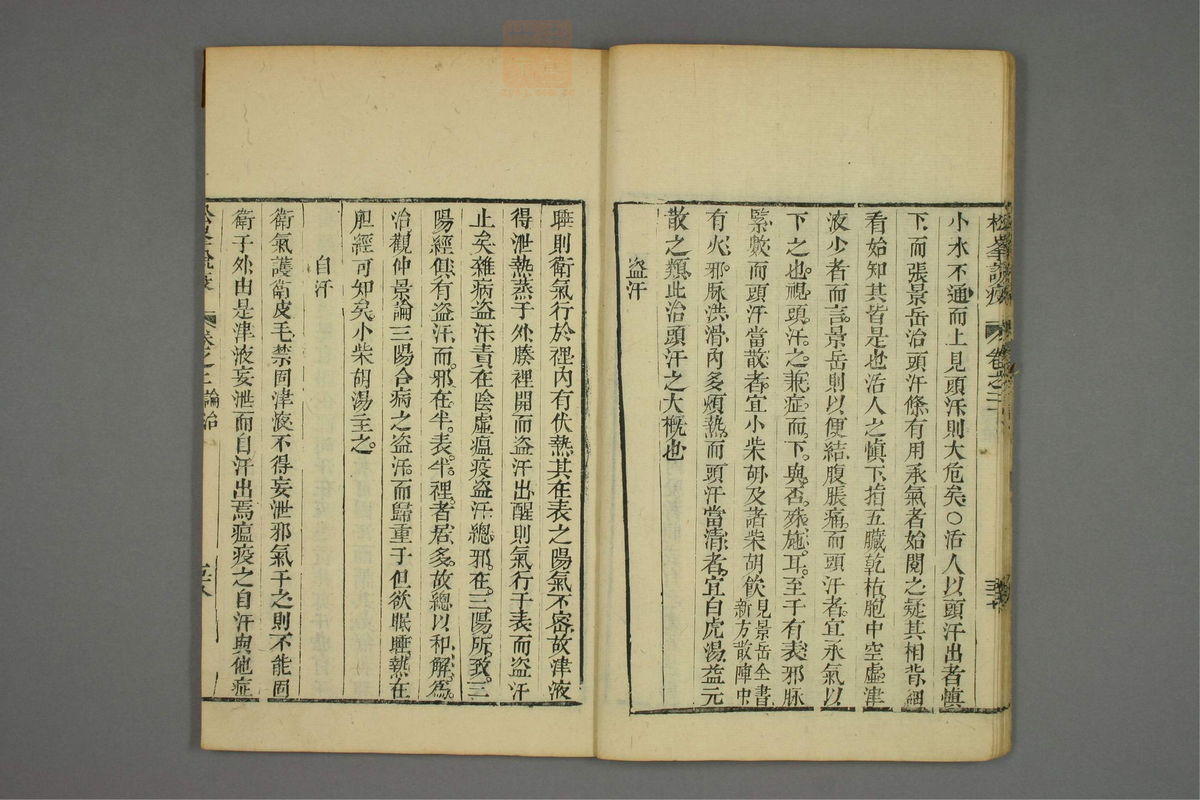 松峯說疫 卷之二
小水不通而上見頭汗則大危矣○活人以頭汗出者慎
下而張景岳治頭汗條有用承氣者始閱之疑其相背細
看始知其皆是也活人之慎下指五臟乾枯胞中空虛津
液少者而言景岳則以便結腹脹痛而頭汗者宜承氣以
下之也視頭汗之兼症而下與否殊施耳至于有表邪脉
緊數而頭汗當散者宜小柴胡及諸柴胡飲見景岳全書
新方散陣中
有火邪脉洪滑內多煩熱而頭汗當清者宜白虎湯益元
散之類此治頭汗之大概也
盜汗
睡則衛氣行於裡內有伏熱其在表之陽氣不密故津液
得泄熱蒸于外腠裡開而盜汗出醒則氣行于表而盜汗
止矣雜病盜汗責在陰虛瘟疫盜汗總邪在三陽所致三
陽經俱有盜汗而邪在半表半裡者居多故總以和解為
治觀仲景論三陽合病之盜汗而歸重于但欲眠睡熱在
胆經可知矣小柴胡湯主之
自汗
衛氣護衛皮毛禁固津液不得妄泄邪氣干之則不能固
衛于外由是津液妄泄而自汗出焉瘟疫之自汗與他症
卷之二 論治